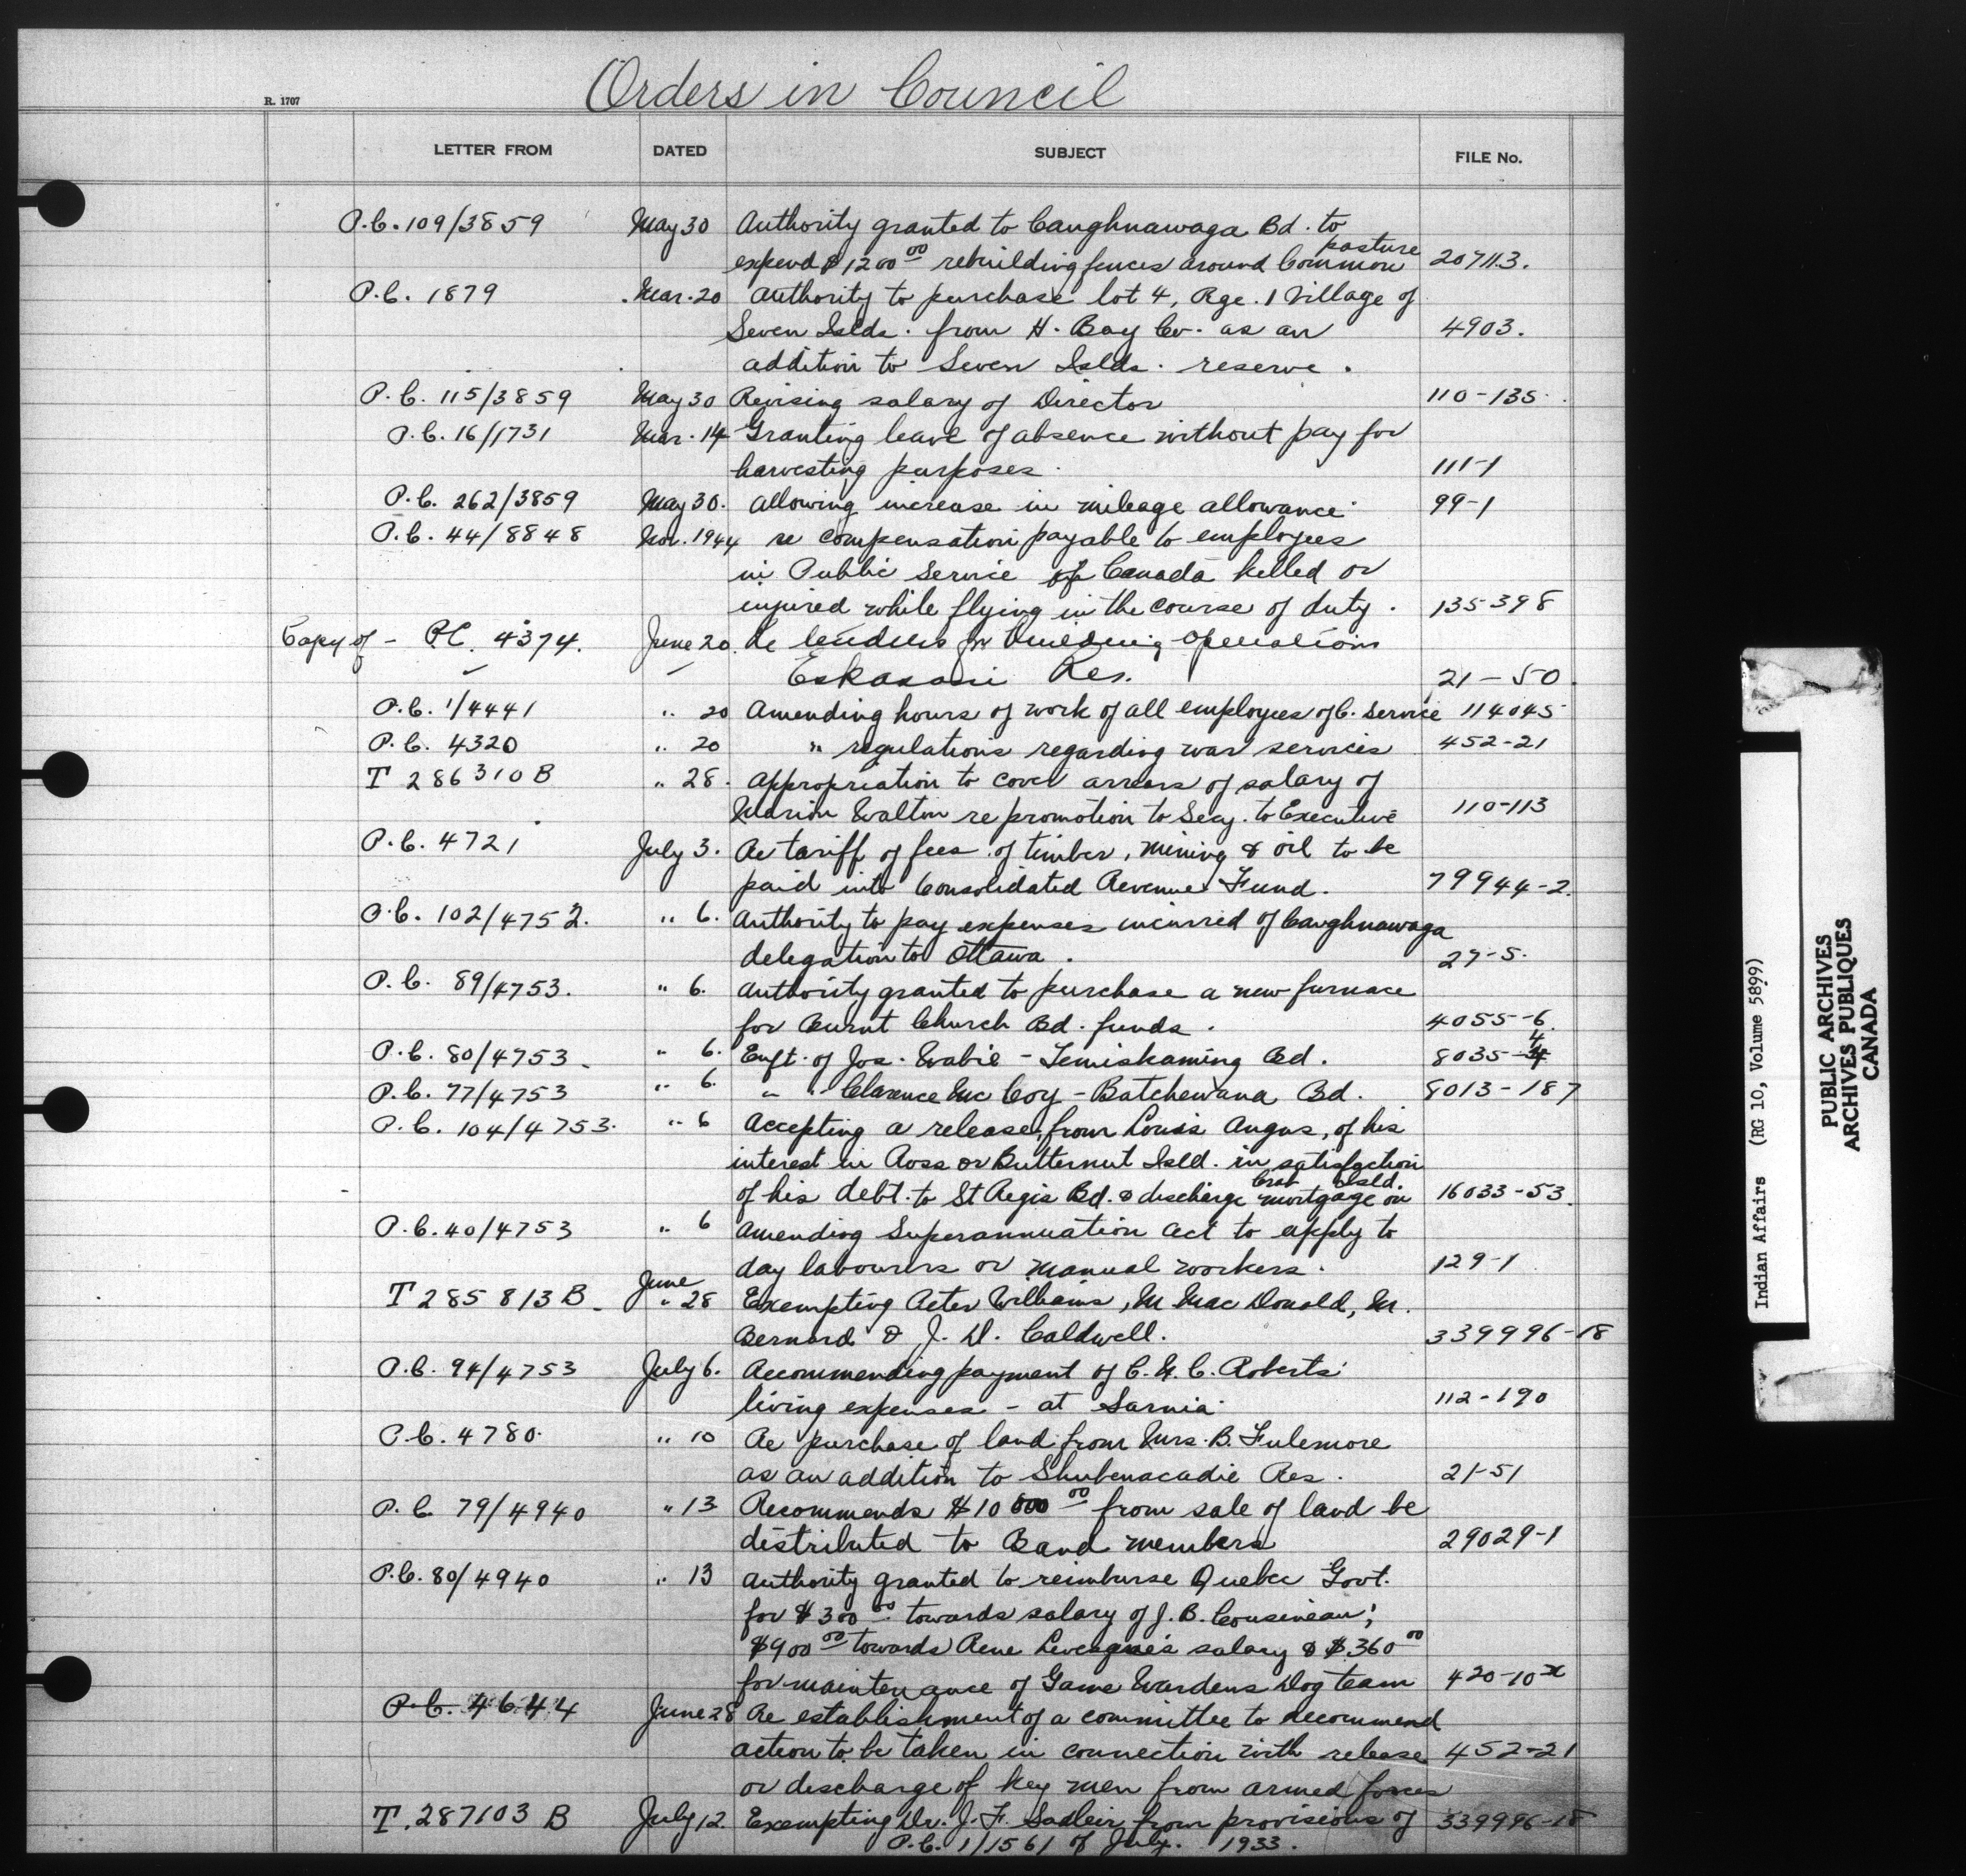 Orders in Council
R. 1707
LETTER FROM DATED SUBJECT FILE No.
P.C. 109/3859 May 30 Authority granted to Caughnawaga Bd. to
pasture
expend $1200 00 rebuilding fences around Common 20711.3.
P.C. 1879 Mar. 20 Authority to purchase lot 4, Rge. 1 Village of
Seven Islds. from H. Bay Co. as an 4903.
addition to Seven Islds. reserve.
P.C. 115/3859 May 30 Revising salary of Director 110-135
P.C. 16/1731 Mar. 14 Granting leave of absence without pay for
harvesting purposes. 111-1
P.C. 262/3859 May 30. Allowing increase in mileage allowance 99-1
P.C. 44/8848 Nov. 1944 re compensation payable to employees
in Public Service of Canada killed or
injured while flying in the course of duty. 135-398
Copy of - P.C. 4374. June 20. Re tenders for building operations
Eskasoni Res. 21-50.
P.C. 1/4441 " 20 Amending hours of work of all employees of C. Service 114045
P.C. 4320 " 20 " regulations regarding war services 452-21
T 286310 B " 28. Appropriation to cover arrears of salary of
Marion Walton re promotion to Secy. to Executive 110-113
P.C. 4721 July 3. Re tariff of fees of timber, mining & oil to be
paid into Consolidated Revenue Fund. 79944-2.
P.C. 102/4752. " 6. Authority to pay expenses incurred of Caughnawaga
delegation to Ottawa. 27-5.
P.C. 89/4753. " 6. Authority granted to purchase a new furnace
for Burnt Church Bd. funds. 4055-6.
P.C. 80/4753. " 6. Enft. of Jos. Wabie - Temiskaming Bd. 8035-4
P.C. 77/4753 " 6. " " Clarence McCoy - Batchewana Bd. 8013-187
P.C. 104/4753. " 6 Accepting a release, from Louis Angus, of his
interest in Ross or Butternut Isld. in satisfaction
Crab Isld.
of his debt to St Regis Bd. & discharge mortgage on 16033-53.
P.C. 40/4753 " 6 Amending Superannuation Act to apply to
day labourers or manual workers. 129-1
June
T 285813 B. " 28 Exempting Peter Williams, M MacDonald, M.
Bernard & J. D. Caldwell. 339996-18
P.C. 94/4753 July 6. Recommending payment of C. H. C. Roberts'
living expenses - at Sarnia 112-190
P.C. 4780. " 10 Re purchase of land from Mrs. B. Fulemore
as an addition to Shubenacadie Res. 21-51
P.C. 79/4940 " 13 Recommends $10 000 00 from sale of land be
distributed to Band members 29029-1
P.C. 80/4940 " 13 Authority granted to reimburse Quebec Govt.
for $300 00 towards salary of J. B. Cousineau;
$900 00 towards Rene Levesque's salary & $360 00
for maintenance of Game Wardens Dog team 420-10x
P.C. 4644 June 28 Re establishment of a committee to recommend
action to be taken in connection with release 452-21
or discharge of key men from armed forces
T. 287103 B July 12. Exempting Dr. J. F. Sadleir from provisions of 339996-18
P.C. 1/1561 of July. 1933.
Indian Affairs (RG 10, Volume 5899)
PUBLIC ARCHIVES
ARCHIVES PUBLIQUES
CANADA